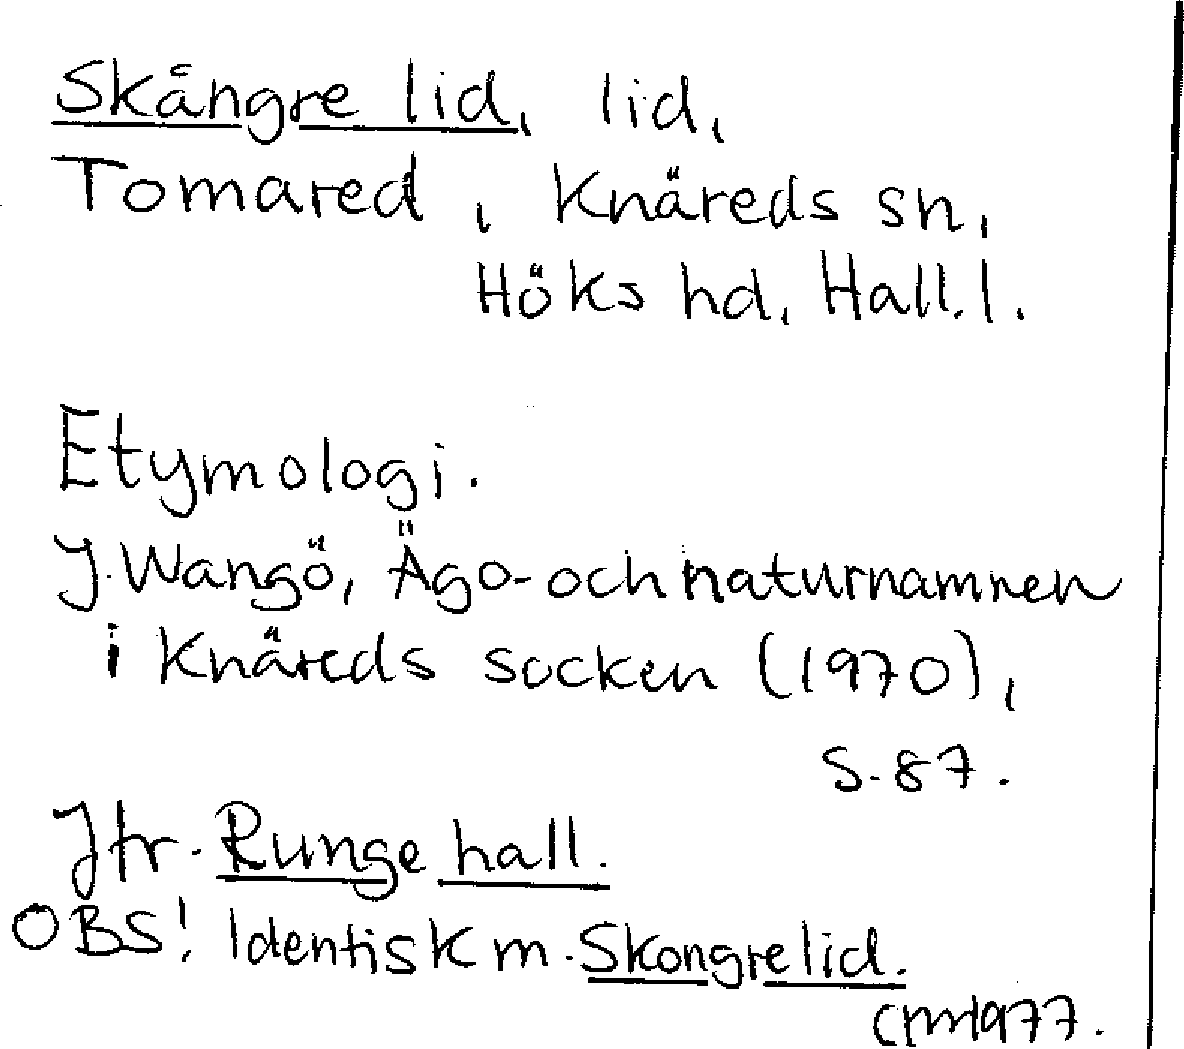 Skångre lid, lid,
Tomared, Knäreds sn,
Höks hd, Hall. l.
Etymologi.
J. Wangö, Ägo- och naturnamnen
i Knäreds socken (1970),
s. 87.
Jfr. Runge hall.
OBS! Identisk m. Skongrelid.
CM 1977.